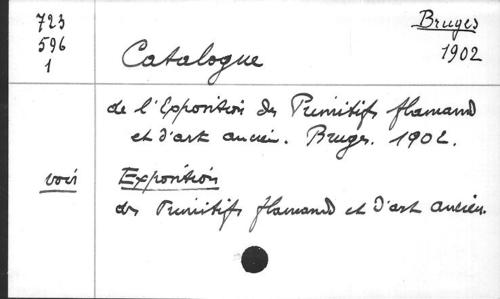 723
596
1
Bruges
1902
Catalogue
de l'Exposition des Primitifs flamands
et d'art ancien. Bruges. 1902.
voir Exposition
des Primitifs flamands et d'art ancien.